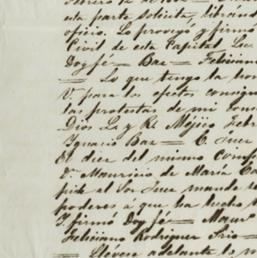 Febrero 12 de
esta parte solicita, librand
oficio. Lo proveyó y firmó
Civil de esta Capital Lic
Doy fé — Baz — Feliciano
— Lo que tengo la hon
V. para los efectos consig
las protestas de mi cons
Dios L. y R. Méjico Febr
Ignacio Baz — C. Juez
El diez del mismo comp
Dn. Mauricio de Maria Ca
pide al Sor Juez mande se
poderes á que ha hecho
Y firmó Doy fé — Maur
Feliciano Rodriguez Srio —
— Lleven adelante lo m